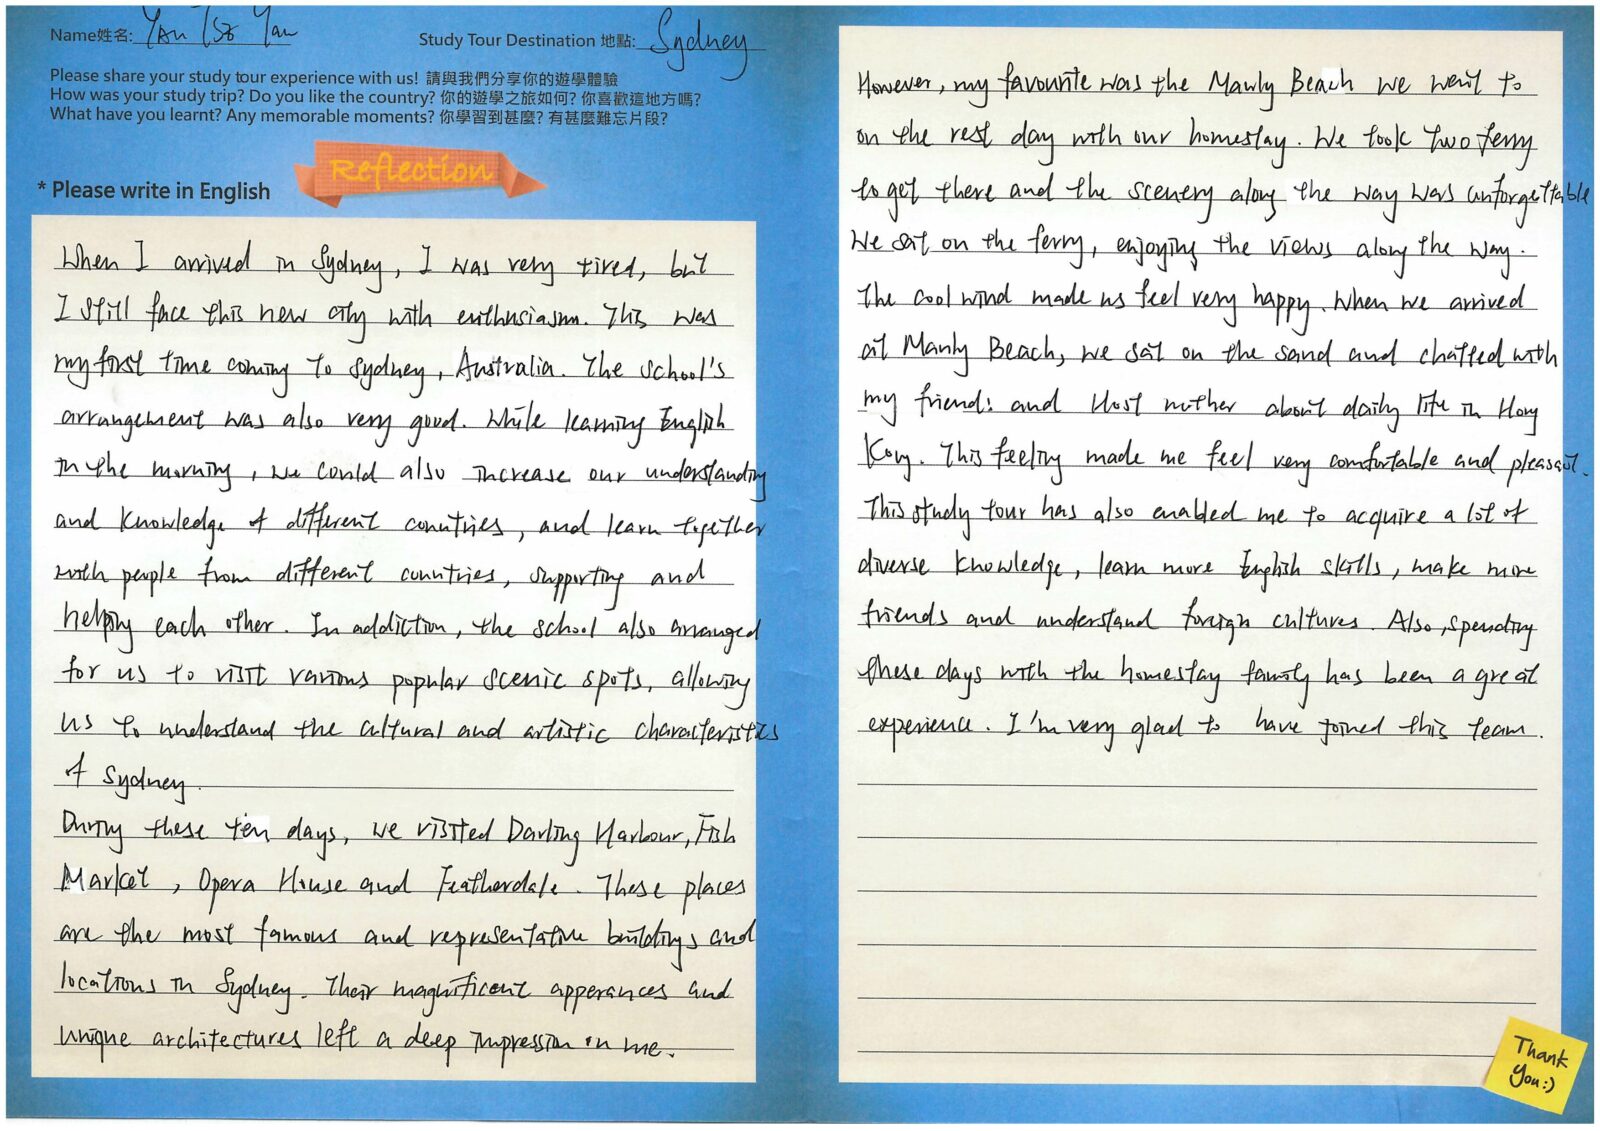 Name姓名: Yan Tsz Yau
Study Tour Destination 地點: Sydney
Please share your study tour experience with us! 請與我們分享你的遊學體驗
How was your study trip? Do you like the country? 你的遊學之旅如何? 你喜歡這地方嗎?
What have you learnt? Any memorable moments? 你學習到甚麼? 有甚麼難忘片段?
Reflection
* Please write in English
When I arrived in Sydney, I was very tired, but
I still face this new city with enthusiasm. This was
my first time coming to Sydney, Australia. The school's
arrangement was also very good. While learning English
in the morning, we could also increase our understanding
and knowledge of different countries, and learn together
with people from different countries, supporting and
helping each other. In addiction, the school also arranged
for us to visit various popular scenic spots, allowing
us to understand the cultural and artistic characteristics
of Sydney.
During these ten days, we visited Darling Harbour, Fish
Market, Opera House and Featherdale. These places
are the most famous and representative buildings and
locations in Sydney. Their magnificent apperances and
unique architectures left a deep impression in me.
However, my favourite was the Manly Beach we went to
on the rest day with our homestay. We took two ferry
to get there and the scenery along the way was unforgettable
We sat on the ferry, enjoying the views along the way.
The cool wind made us feel very happy. When we arrived
at Manly Beach, we sat on the sand and chatted with
my friends and Host mother about daily life in Hong
Kong. This feeling made me feel very comfortable and pleasant.
This study tour has also enabled me to acquire a lot of
diverse knowledge, learn more English skills, make more
friends and understand foreign cultures. Also, spending
these days with the homestay family has been a great
experience. I'm very glad to have joined this team.
Thank
You:)